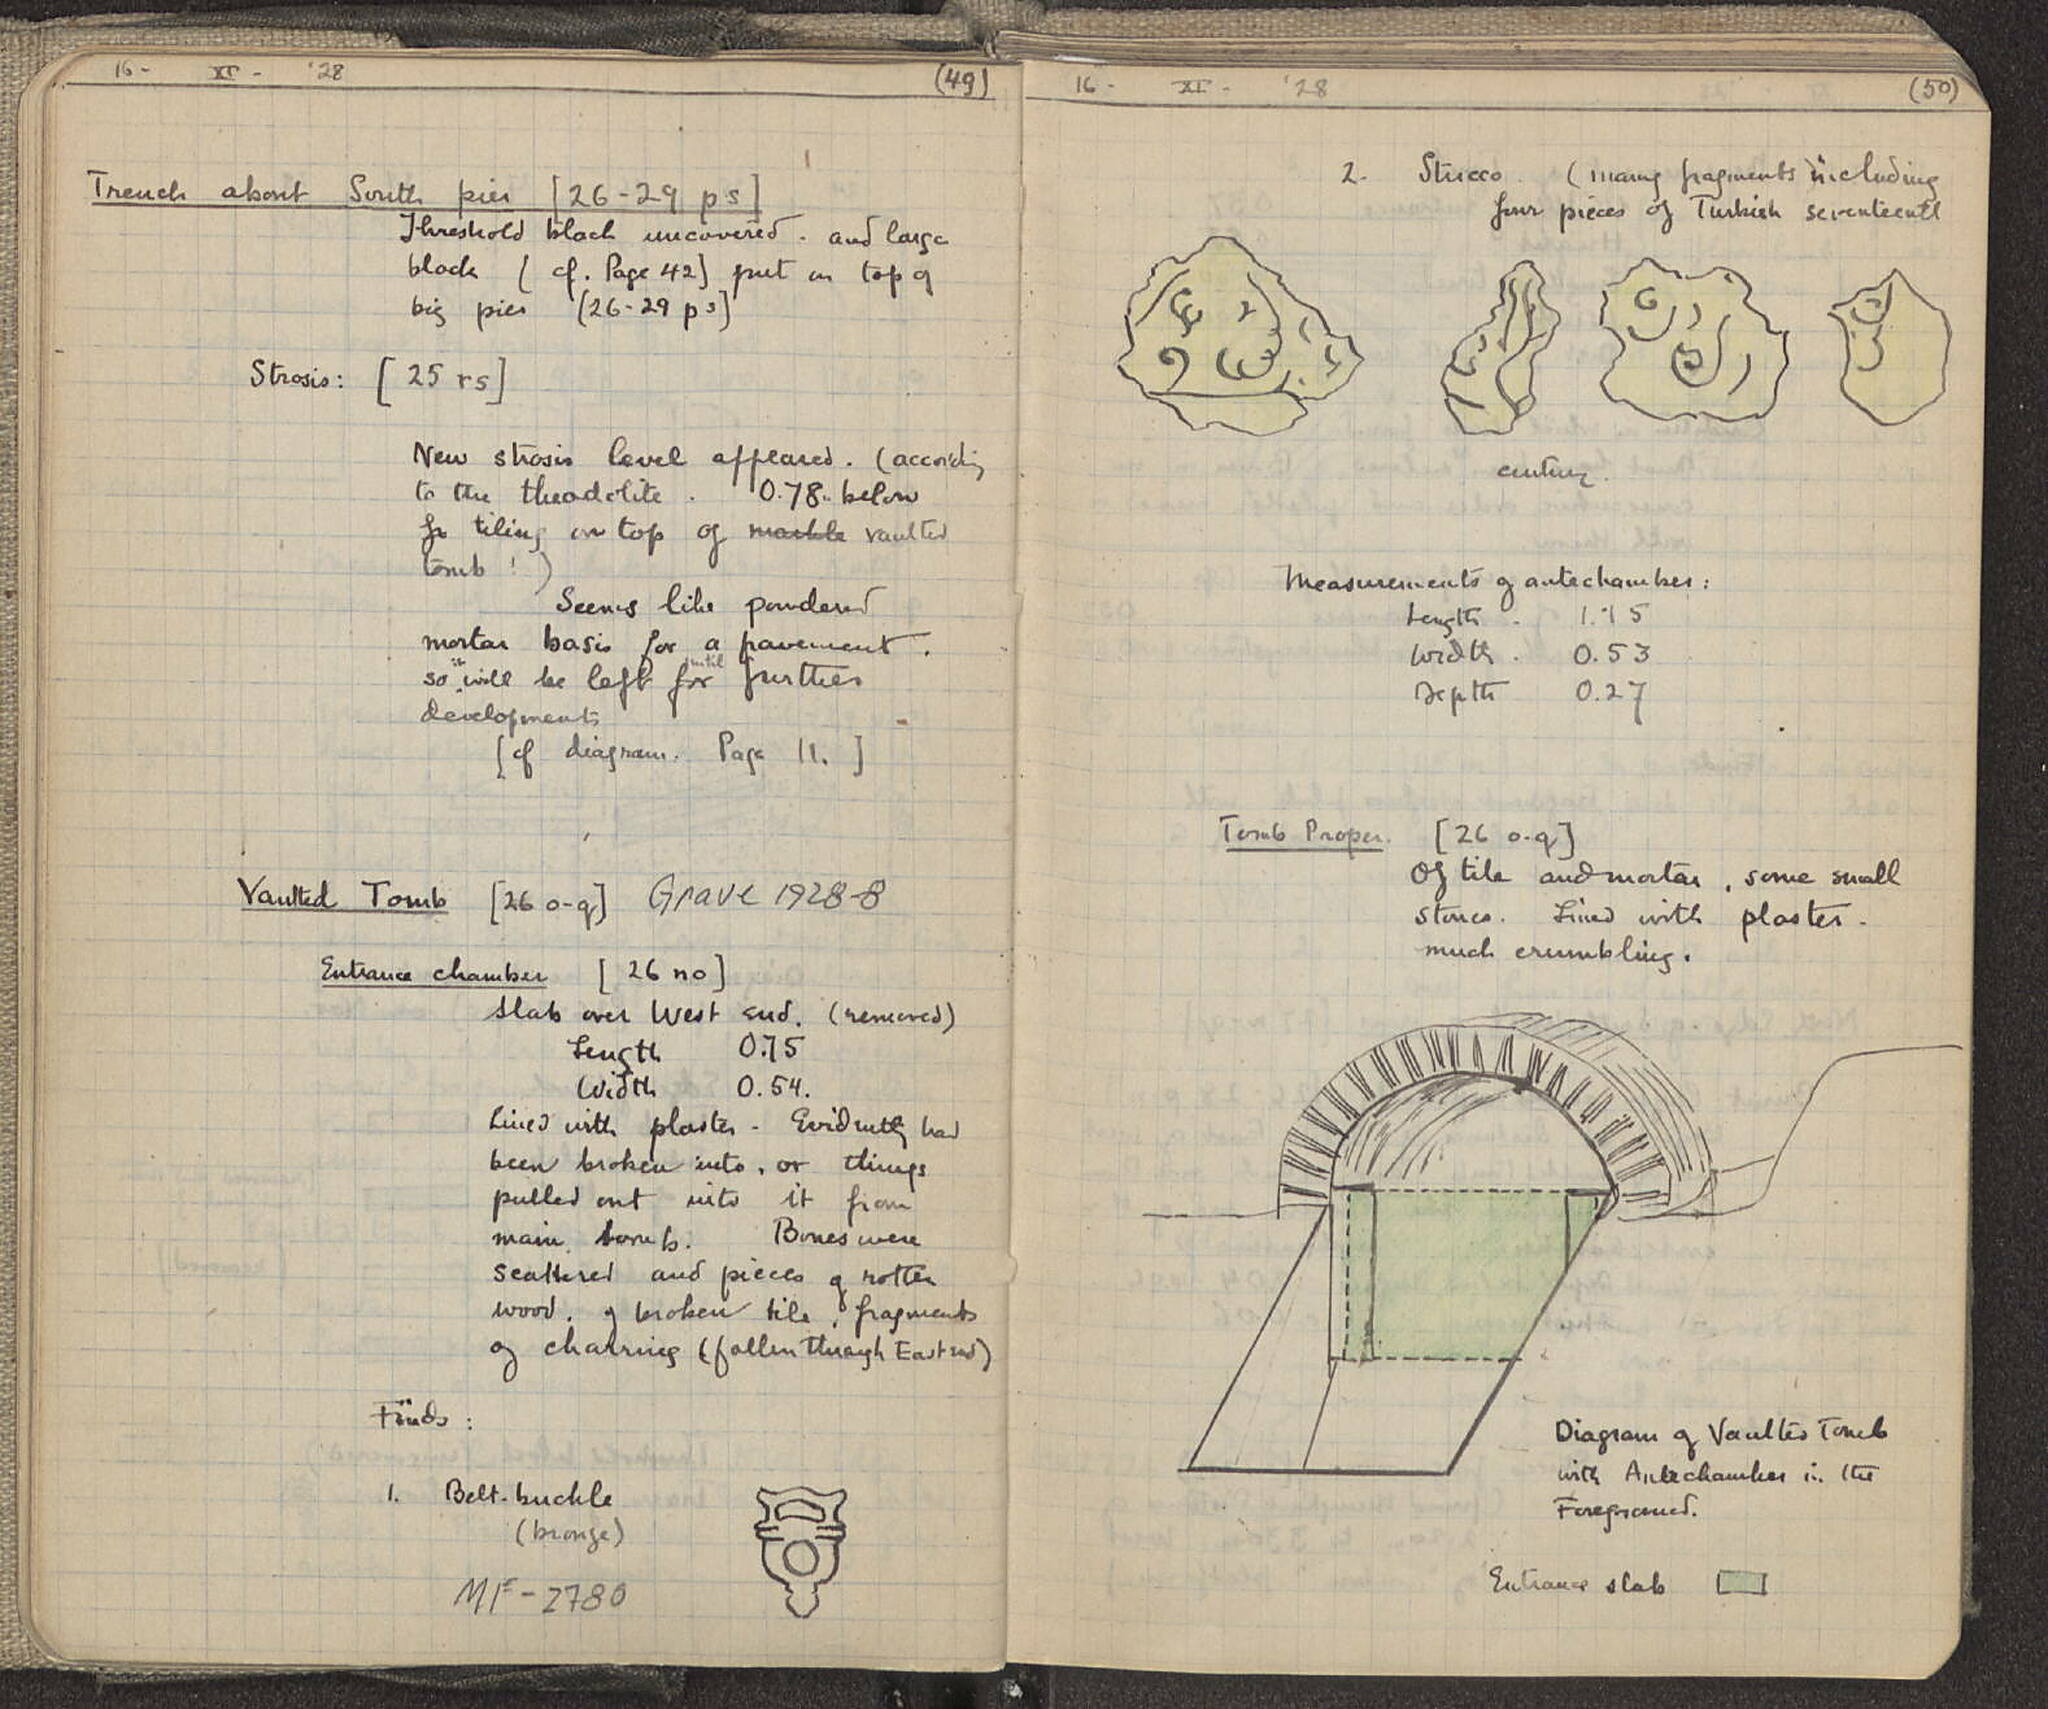 16 - XI - '28 (49)
Trench about South pier [26-29 ps]
Threshold block uncovered. and large
block (cf. Page 42) put on top of
big pier (26-29 ps)
Strosis: [25 rs]
New strosis level appeared. (according
to the theodolite. 0.78 below
tiling on top of marble vaulted
tomb!)
Seems like powdered
mortar basis for a pavement.
so it will be left for until further
developments
[cf diagram. Page 11.]
Vaulted Tomb [26 o-q] Grave 1928-8
Entrance chamber [26 no]
Slab over West end. (removed)
Length 0.75
Width 0.54.
Lined with plaster - Evidently had
been broken into, or things
pulled out into it from
main tomb. Bones were
scattered and pieces of rotten
wood, of broken tile, fragments
of charring (fallen through East end)
Finds:
1. Belt-buckle
(bronze)
MF-2780
16 - XI - '28 (50)
2. Stucco. (many fragments) including
four pieces of Turkish seventeenth
century.
Measurements of antechamber:
Length. 1.15
Width. 0.53
Depth 0.27
Tomb Proper. [26 o-q]
Of tile and mortar, some small
stones. Lined with plaster -
much crumbling.
Diagram of Vaulted Tomb
with Antechamber in the
Foreground.
Entrance slab